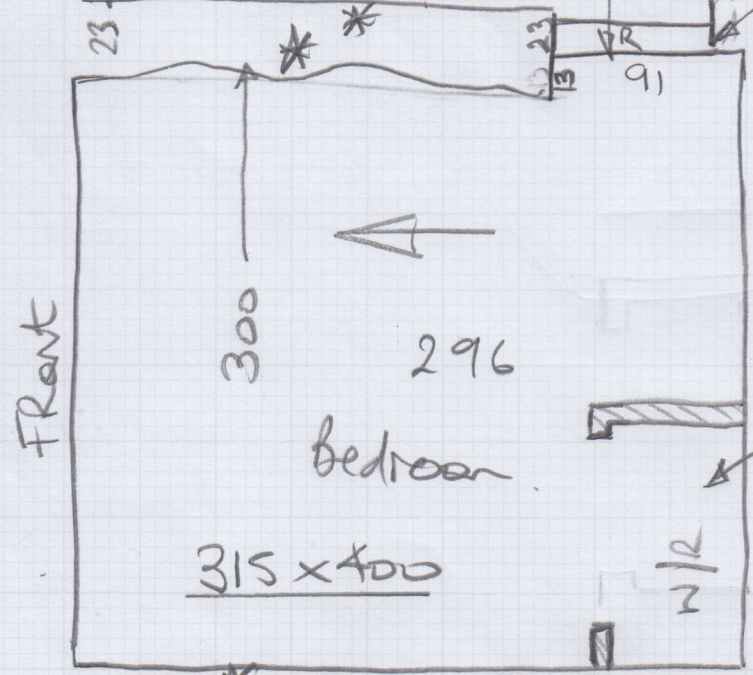 23
23
R
13
91
FRont
300
296
Bedroom
315 x 400
W/R